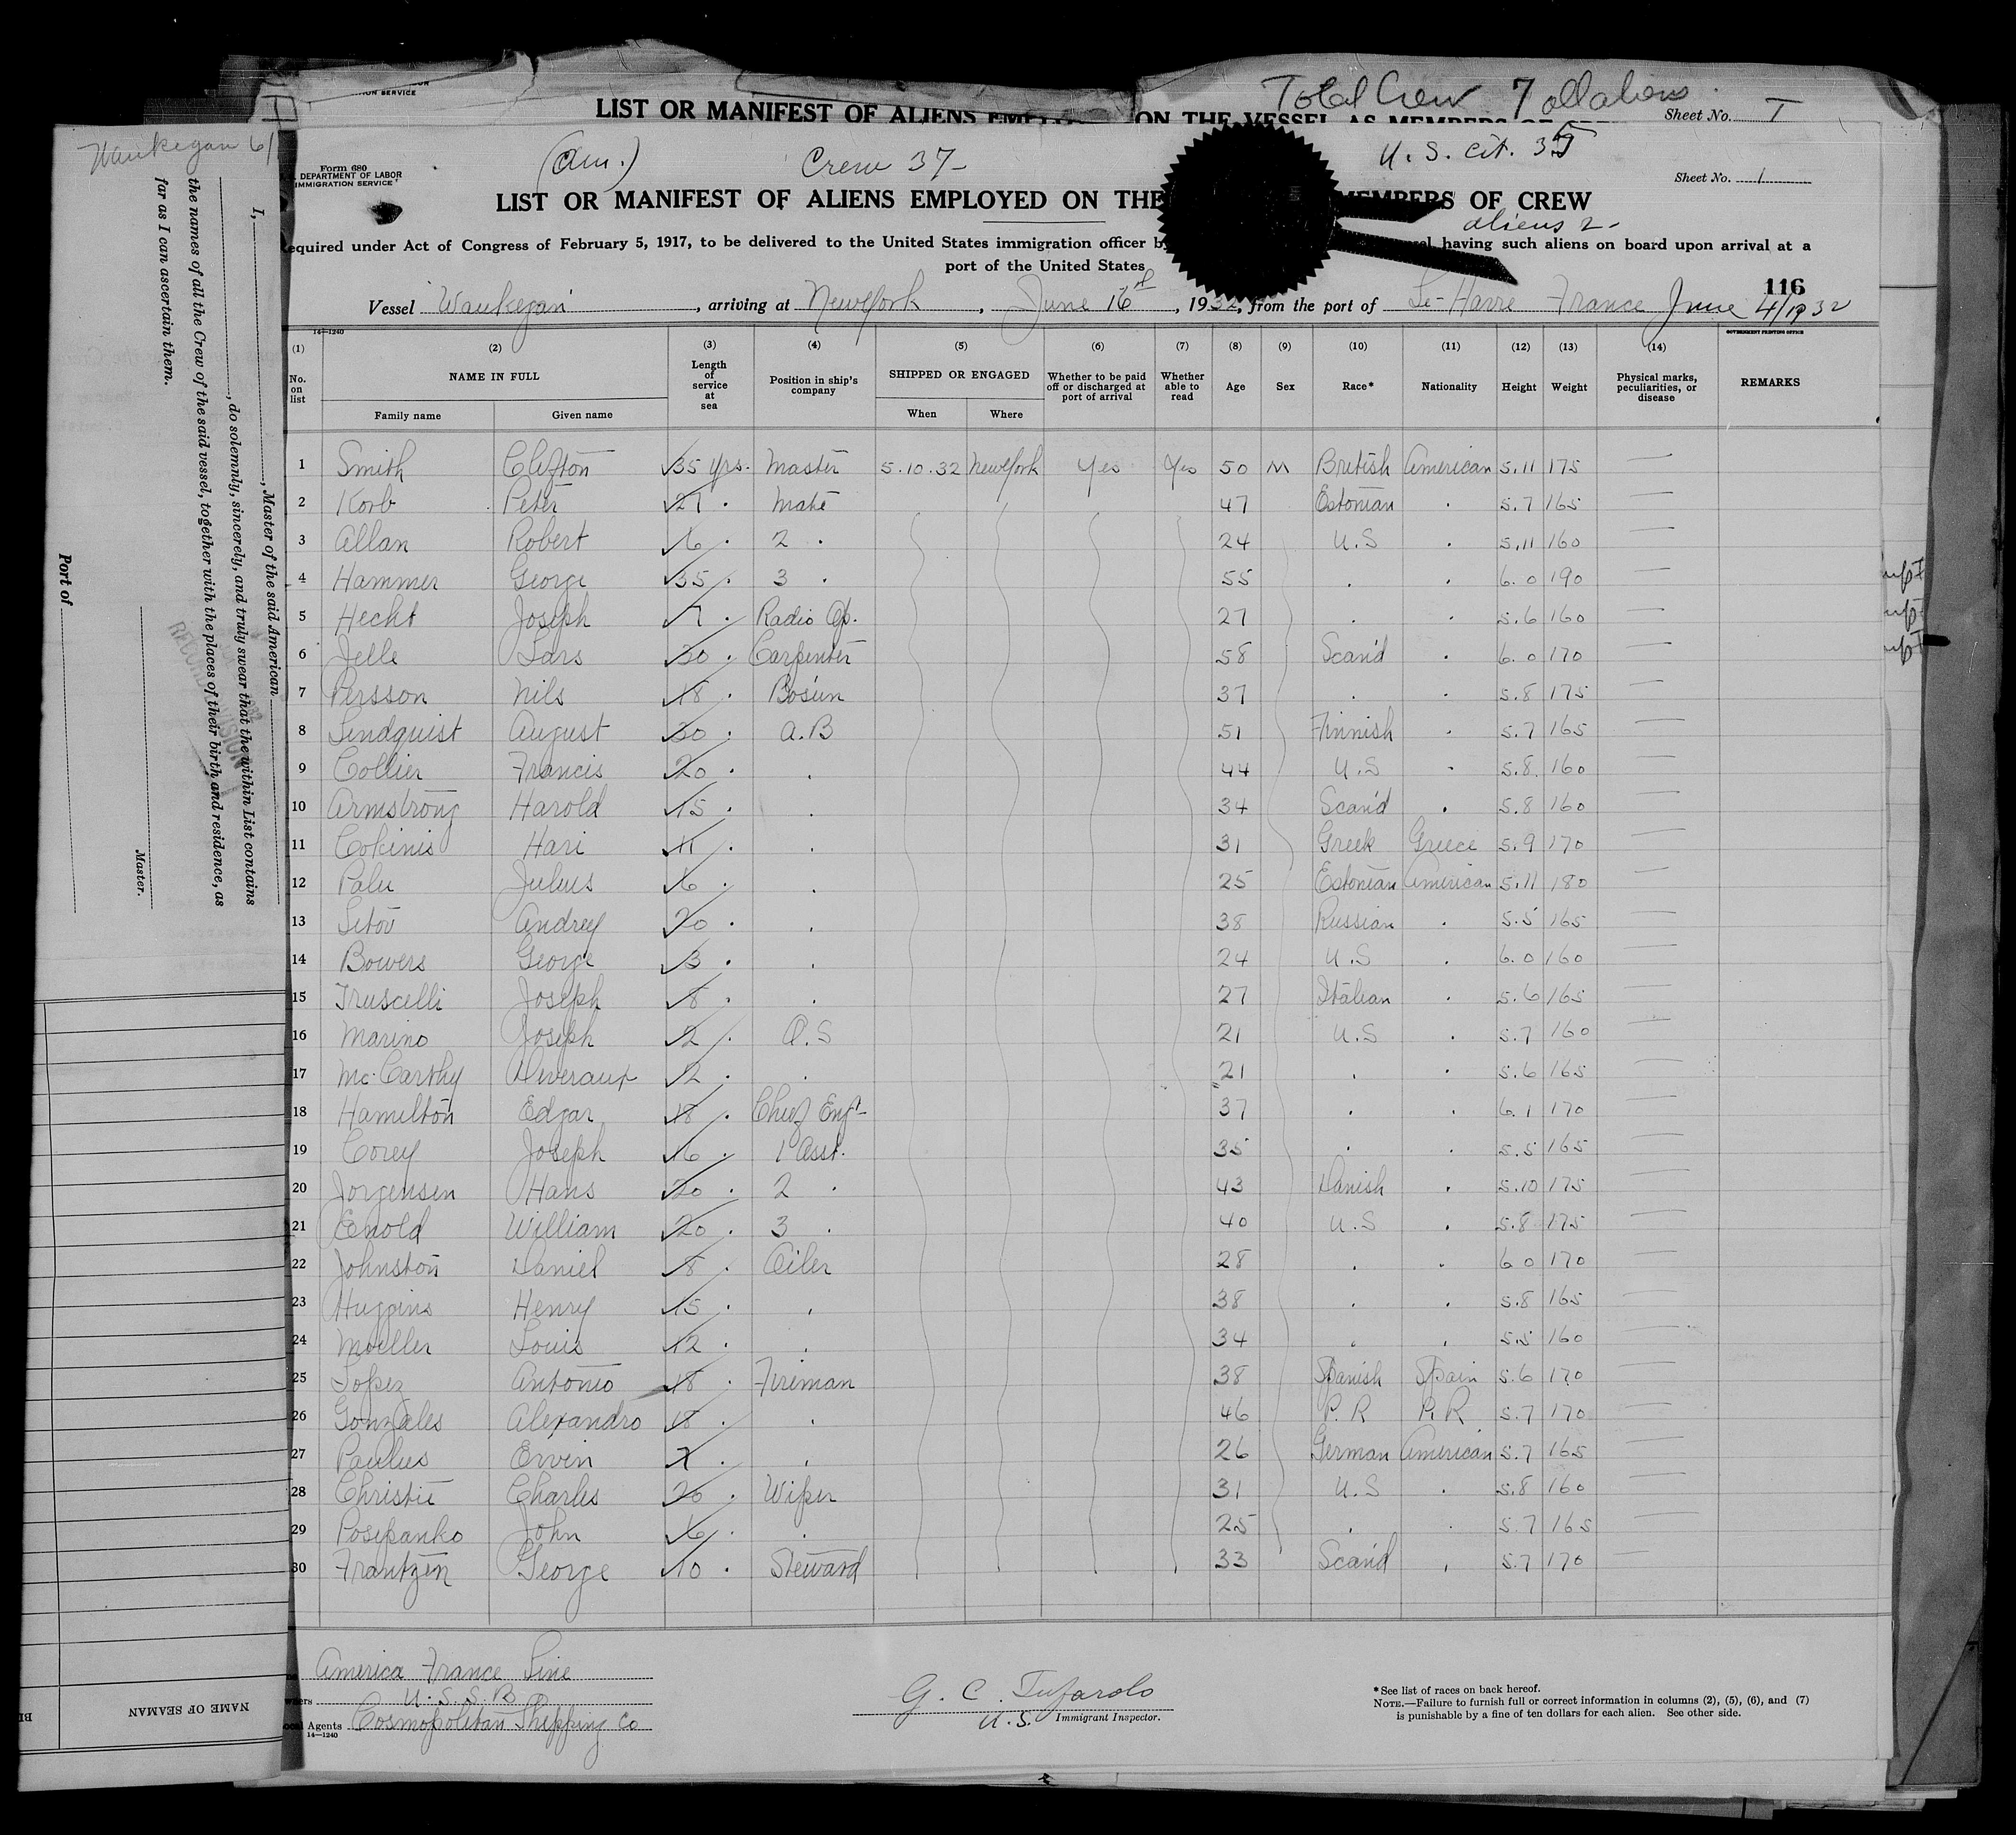 Total Crew 7 all aliens
LIST OR MANIFEST OF ALIENS ON THE VESSEL AS MEMBERS OF
Sheet No.
Waukegan 6/
Form 680
DEPARTMENT OF LABOR
IMMIGRATION SERVICE
(Am.) Crew 37 U. S. Cit. 35
Sheet No. 1
LIST OR MANIFEST OF ALIENS EMPLOYED ON THE MEMBERS OF CREW
aliens 2
equired under Act of Congress of February 5, 1917, to be delivered to the United States immigration officer by having such aliens on board upon arrival at a
port of the United States
116
Vessel Waukegan, arriving at New York, June 16, 1932, from the port of Le-Havre France June 4/1932
14-1240
GOVERNMENT PRINTING OFFICE
(1) (2) (3) (4) (5) (6) (7) (8) (9) (10) (11) (12) (13) (14)
No. on list NAME IN FULL Family name Given name Length of service at sea Position in ship's company SHIPPED OR ENGAGED When Where Whether to be paid off or discharged at port of arrival Whether able to read Age Sex Race* Nationality Height Weight Physical marks, peculiarities, or disease REMARKS
1 Smith Clifton 35 yrs. Master 5.10.32 New York Yes Yes 50 M British American 5.11 175 —
2 Korb Peter 27 . Mate 47 Estonian . 5.7 165 —
3 Allan Robert 6 . 2 . 24 U.S . 5.11 160 —
4 Hammer George 35 . 3 . 55 . . 6.0 190 —
5 Hecht Joseph 7 . Radio Op. 27 . . 5.6 160 —
6 Jelle Lars 30 . Carpenter 58 Scand . 6.0 170 —
7 Persson Nils 18 . Bosun 37 . . 5.8 175 —
8 Lindquist August 30 . A.B 51 Finnish . 5.7 165 —
9 Collier Francis 20 . . 44 U.S . 5.8 160 —
10 Armstrong Harold 15 . . 34 Scand . 5.8 160 —
11 Cokinis Hari 11 . . 31 Greek Greece 5.9 170 —
12 Palu Julius 6 . . 25 Estonian American 5.11 180 —
13 Sitov Andrey 20 . . 38 Russian . 5.5 165 —
14 Bowers George 3 . . 24 U.S . 6.0 160 —
15 Truscelli Joseph 8 . . 27 Italian . 5.6 165 —
16 Marino Joseph 2 . O.S 21 U.S . 5.7 160 —
17 Mc.Carthy Diveraux 2 . . 21 . . 5.6 165 —
18 Hamilton Edgar 18 . Chief Eng 37 . . 6.1 170 —
19 Corey Joseph 16 . 1 Asst. 35 . . 5.5 165 —
20 Jorgensen Hans 20 . 2 . 43 Danish . 5.10 175 —
21 Enold William 20 . 3 . 40 U.S . 5.8 175 —
22 Johnston Daniel 8 . Oiler 28 . . 6 0 170 —
23 Huggins Henry 15 . . 38 . . 5.8 165 —
24 Moeller Louis 12 . . 34 . . 5.5 160 —
25 Lopez Antonio 18 . Fireman 38 Spanish Spain 5.6 170 —
26 Gonzales Alexandro 18 . . 46 P.R P.R 5.7 170 —
27 Paulus Ervin 7 . . 26 German American 5.7 165 —
28 Christie Charles 20 . Wiper 31 U.S . 5.8 160 —
29 Posepanko John 6 . . 25 . . 5.7 165 —
30 Frantzen George 10 . Steward 33 Scand . 5.7 170 —
America France Line
U.S.S.B
ocal Agents Cosmopolitan Shipping Co
14-1240
G. C. Tufarolo
U.S. Immigrant Inspector.
*See list of races on back hereof.
NOTE.—Failure to furnish full or correct information in columns (2), (5), (6), and (7)
is punishable by a fine of ten dollars for each alien. See other side.
I, , Master of the said American
, do solemnly, sincerely, and truly swear that the within List contains
the names of all the Crew of the said vessel, together with the places of their birth and residence, as
far as I can ascertain them.
Master.
Port of
NAME OF SEAMAN